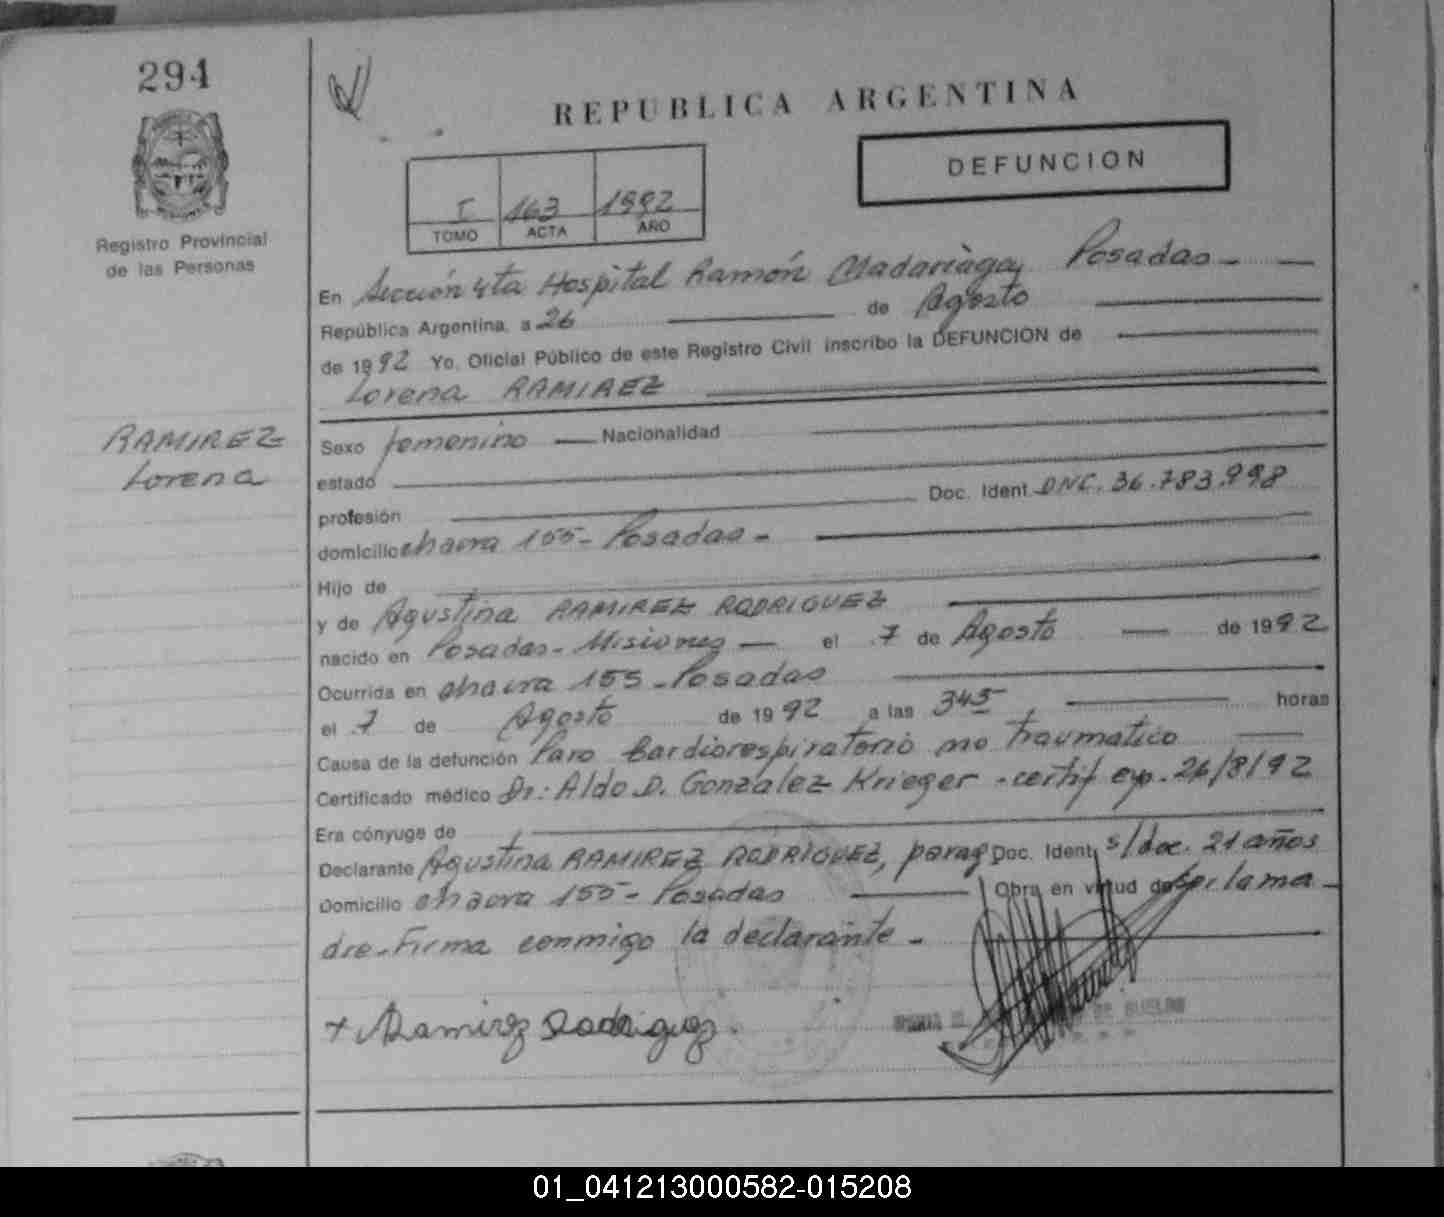 294
REPUBLICA ARGENTINA
DEFUNCION
I 163 1992
TOMO ACTA AÑO
Registro Provincial
de las Personas
En Sección 4ta Hospital Ramón Madariaga, Posadas -
República Argentina, a 26 de Agosto
de 1992 Yo, Oficial Público de este Registro Civil inscribo la DEFUNCION de
Lorena RAMIREZ
RAMIREZ
Lorena
Sexo femenino Nacionalidad
estado
profesión Doc. Ident. DNC. 36.783.998
domicilio chacra 155 - Posadas -
Hijo de
y de Agustina RAMIREZ RODRIGUEZ
nacido en Posadas - Misiones el 7 de Agosto de 1992
Ocurrida en chacra 155 - Posadas
el 7 de Agosto de 1992 a las 345 horas
Causa de la defunción Paro Cardiorespiratorio no traumatico
Certificado médico Dr: Aldo D. Gonzalez Krieger - certif exp. 26/8/92
Era cónyuge de
Declarante Agustina RAMIREZ RODRIGUEZ, parag Doc. Ident. s/doc. 21 años
Domicilio chacra 155 - Posadas Obra en virtud de Ser la ma
dre - Firma conmigo la declarante -
+ Ramirez Rodriguez
01_041213000582-015208